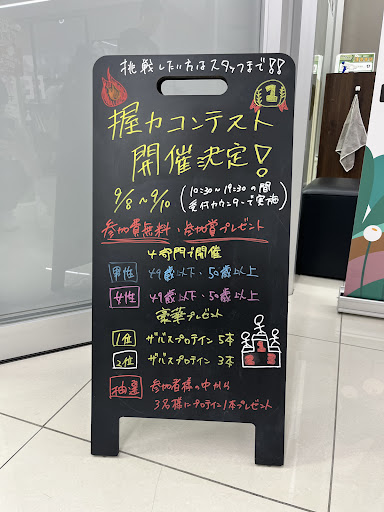 挑戦したい方はスタッフまで!!
1
握力コンテスト
開催決定!
9/8~9/10
(10:30~19:30の間
受付カウンターで実施)
参加費無料・参加賞プレゼント
4部門で開催
男性 49歳以下・50歳以上
女性 49歳以下・50歳以上
豪華プレゼント
1位 ザバスプロテイン 5本
2位 ザバスプロテイン 3本
1
2 3
抽選 参加者様の中から
3名様にプロテイン1本プレゼント